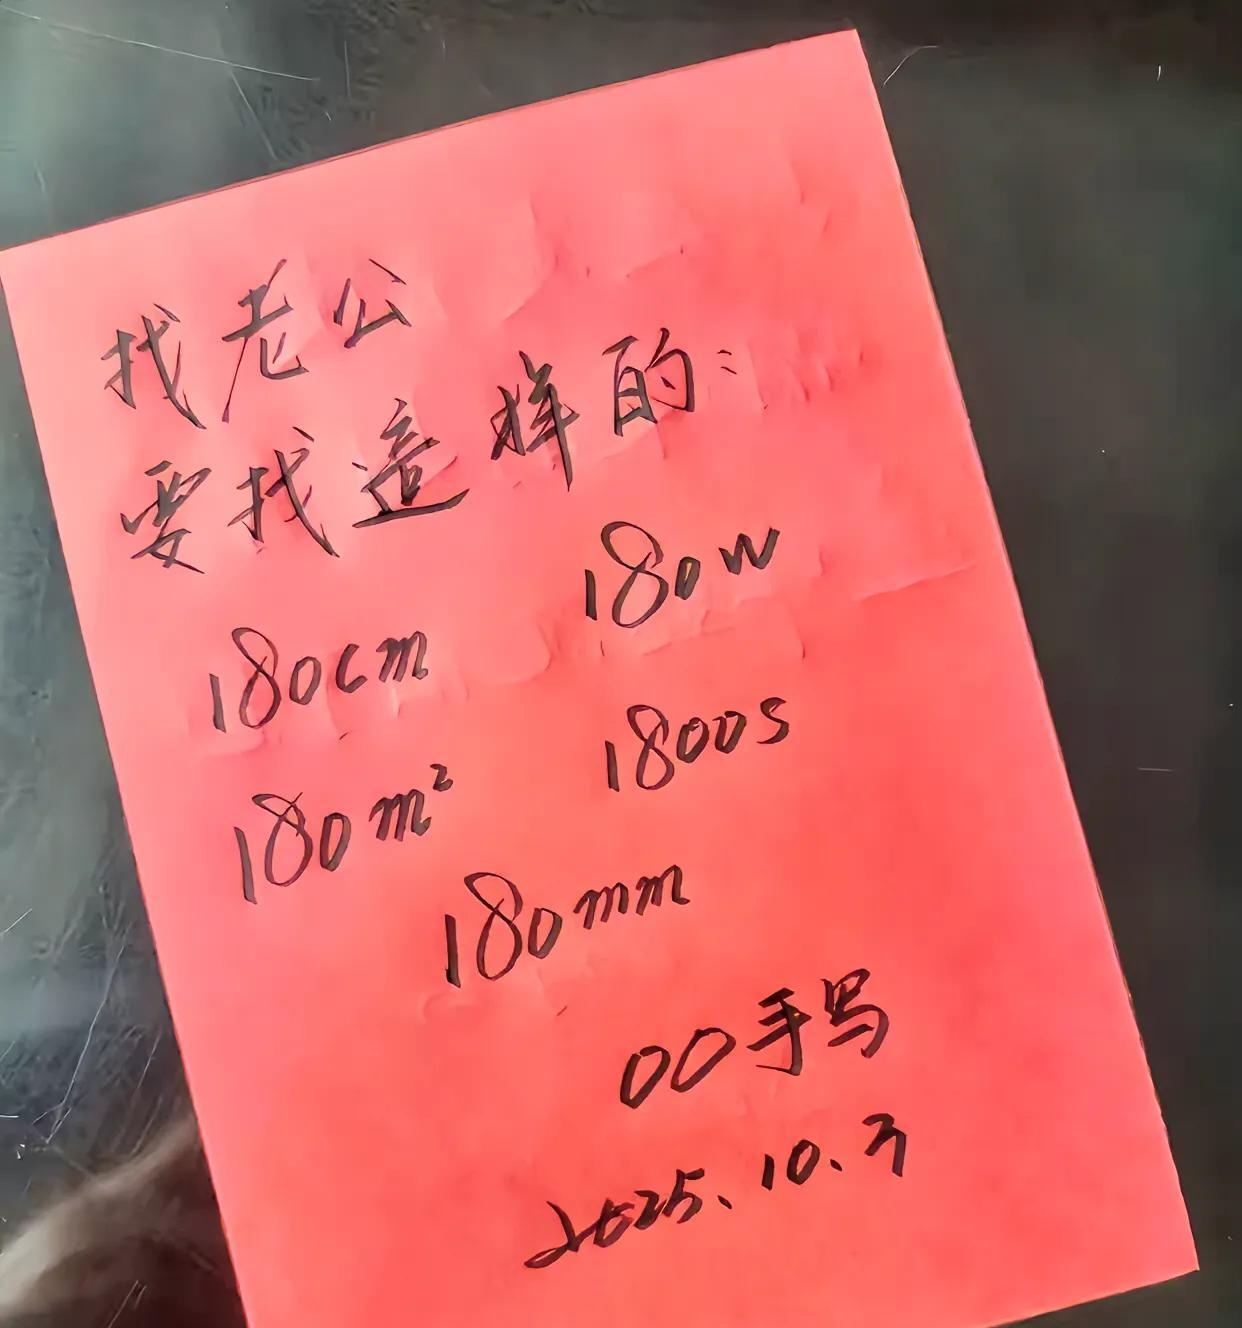 找老公
要找这样的:
180cm 180W
180m² 1800s
180mm
00手写
2025.10.3